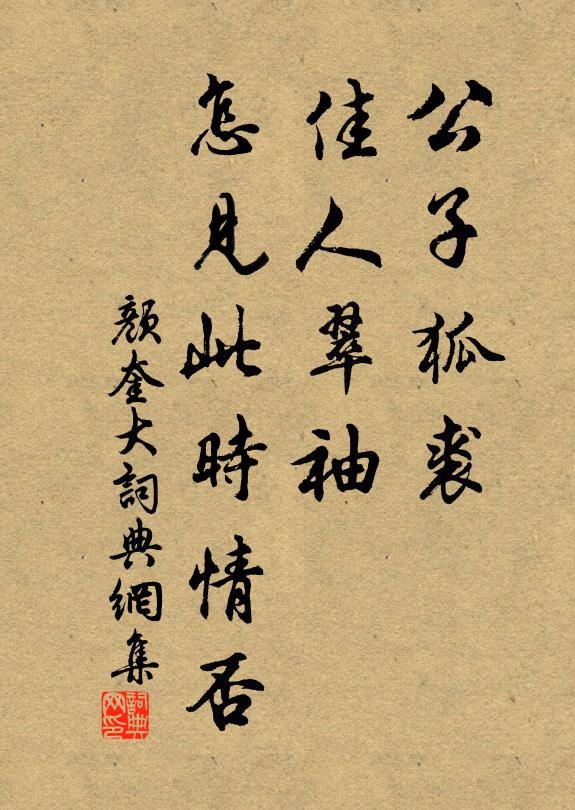 公子狐裘
佳人翠袖
怎見此時情否
顏奎大詞典網集
詞典網印